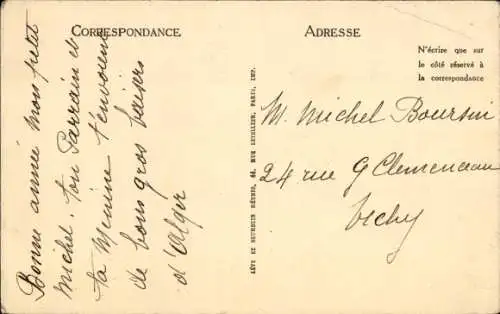 CORRESPONDANCE
Bonne année mon petit
Michel. ton Parrain et
ta Menine t'envoient
de bons gros baisers
d'Alger
LÉVY ET NEURDEIN RÉUNIS, 44, RUE LETELLIER, PARIS, IMP.
ADRESSE
N'écrire que sur
le côté réservé à
la correspondance
M. Michel Boursin
24 rue G Clemenceau
Vichy